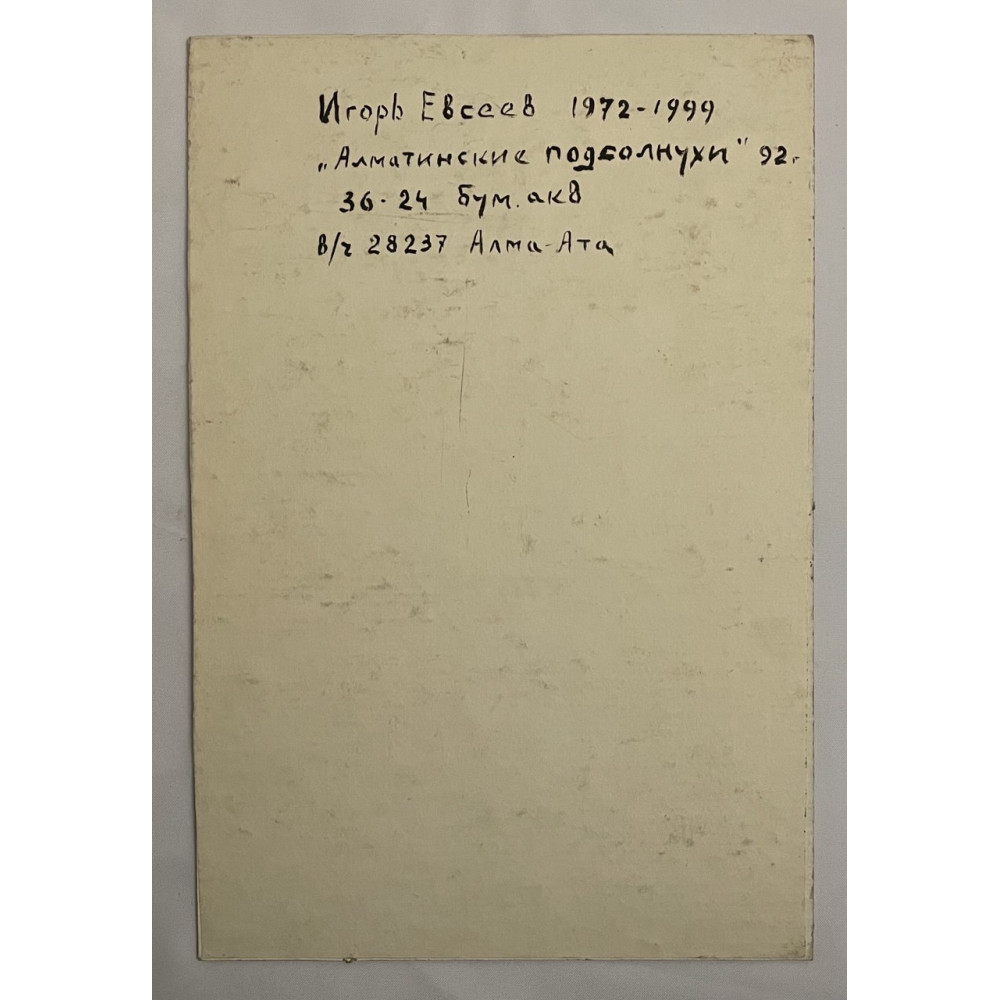 Игорь Евсеев 1972-1999
„Алматинские подсолнухи" 92.
36-24 бум. акв
в/ч 28237 Алма-Ата